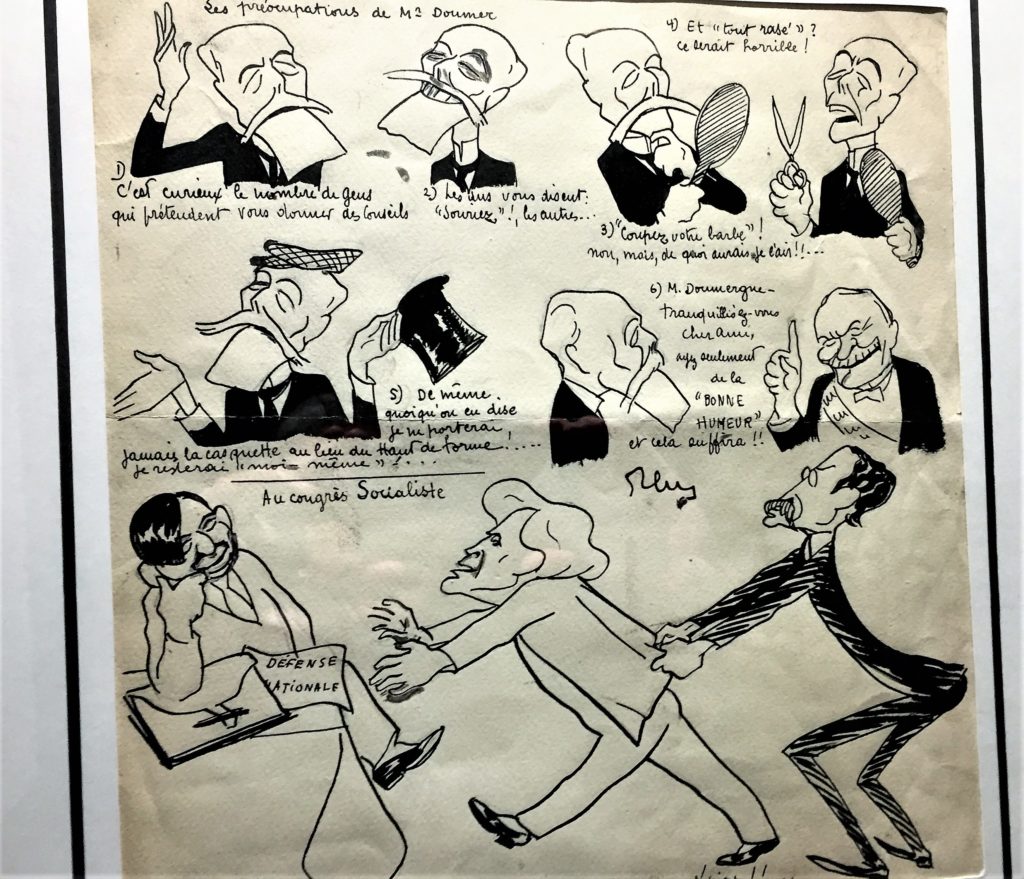 Les préocupations de Mr Doumer
1) C'est curieux le nombre de gens
qui prétendent vous donner des conseils
2) Les uns vous disent:
"Souriez"!, les autres...
3) "Coupez votre barbe"!
non, mais, de quoi aurais-je l'air!!...
4) Et "tout rasé"?
ce serait horrible!
5) De même
quoiqu'on en dise
je ne porterai,
jamais la casquette au lieu du Haut de forme.....
je resterai "moi-même"!...
6) M. Doumergue-
tranquillisez-vous
cher ami,
ayez seulement
de la
"BONNE
HUMEUR"
et cela suffira!!
Au congrès Socialiste
DÉFENSE
NATIONALE